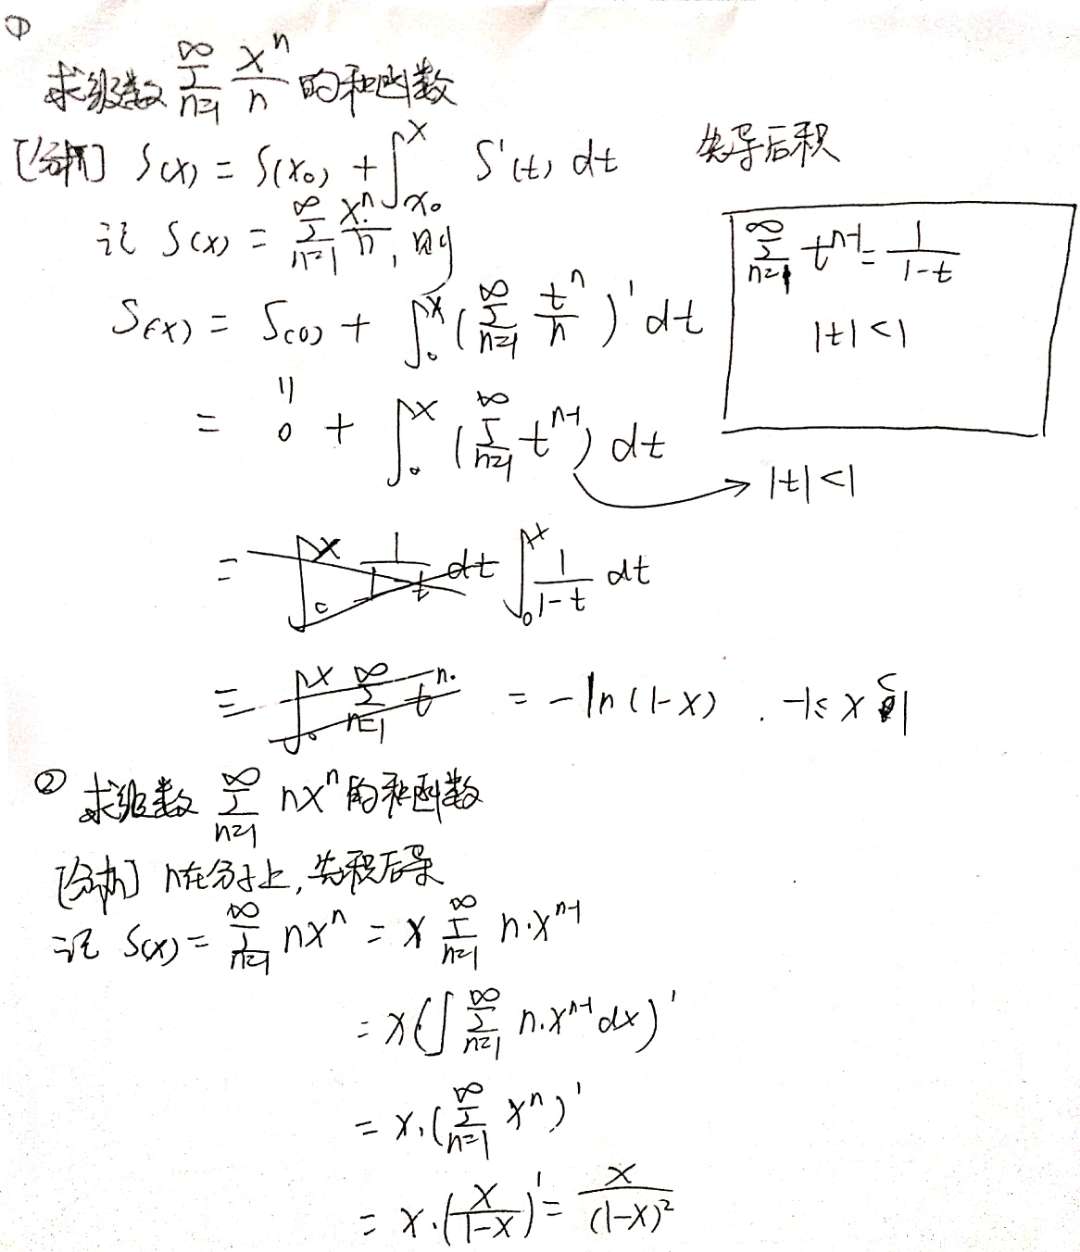 ①
求级数 ∑_{n=1}^{∞} x^n/n 的和函数
[分析] S(x) = S(x₀) + ∫_{x₀}^{x} S'(t) dt 先导后积
记 S(x) = ∑_{n=1}^{∞} x^n/n, 则
∑_{n=1}^{∞} t^{n-1} = 1/(1-t)
|t|<1
S(x) = S(0) + ∫_0^x (∑_{n=1}^{∞} t^n/n)' dt
= 0 + ∫_0^x (∑_{n=1}^{∞} t^{n-1}) dt → |t|<1
= ∫_0^x 1/(1-t) dt
= -ln(1-x) . -1≤x<1
② 求级数 ∑_{n=1}^{∞} nx^n 的和函数
[分析] n在分子上, 先积后导
记 S(x) = ∑_{n=1}^{∞} nx^n = x ∑_{n=1}^{∞} n·x^{n-1}
= x(∫ ∑_{n=1}^{∞} n·x^{n-1} dx)'
= x·(∑_{n=1}^{∞} x^n)'
= x·(x/(1-x))' = x/(1-x)²